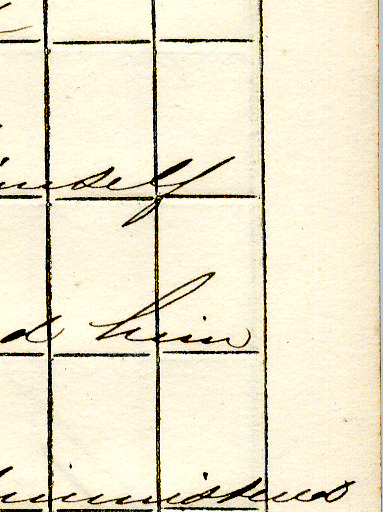 imself
d him
ministered